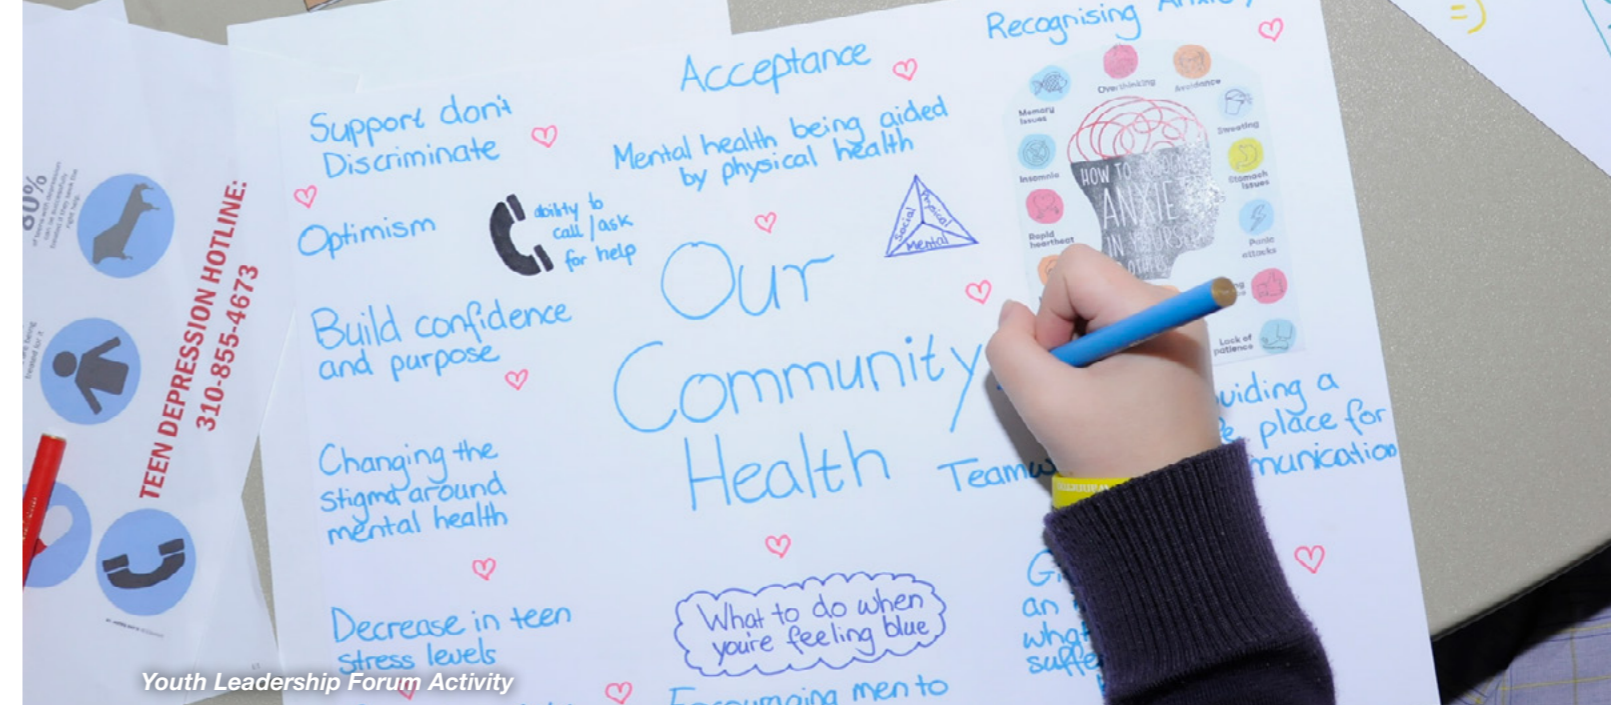 80%
TEEN DEPRESSION HOTLINE:
310-855-4673
Support don't
Discriminate
Optimism
ability to
call /ask
for help
Build confidence
and purpose
Changing the
stigma around
mental health
Decrease in teen
stress levels
Acceptance
Mental health being aided
by physical health
Social
Physical
Mental
Our
Community
Health
What to do when
you're feeling blue
Encouraging men to
Recognising
Overthinking
Avoidance
Memory
Issues
Sweating
Insomnia
Stomach
Issues
Rapid
heartbeat
Panic
attacks
HOW TO
ANXIE
IN
OTHERS
Lack of
patience
a
place for
an
=)
Youth Leadership Forum Activity